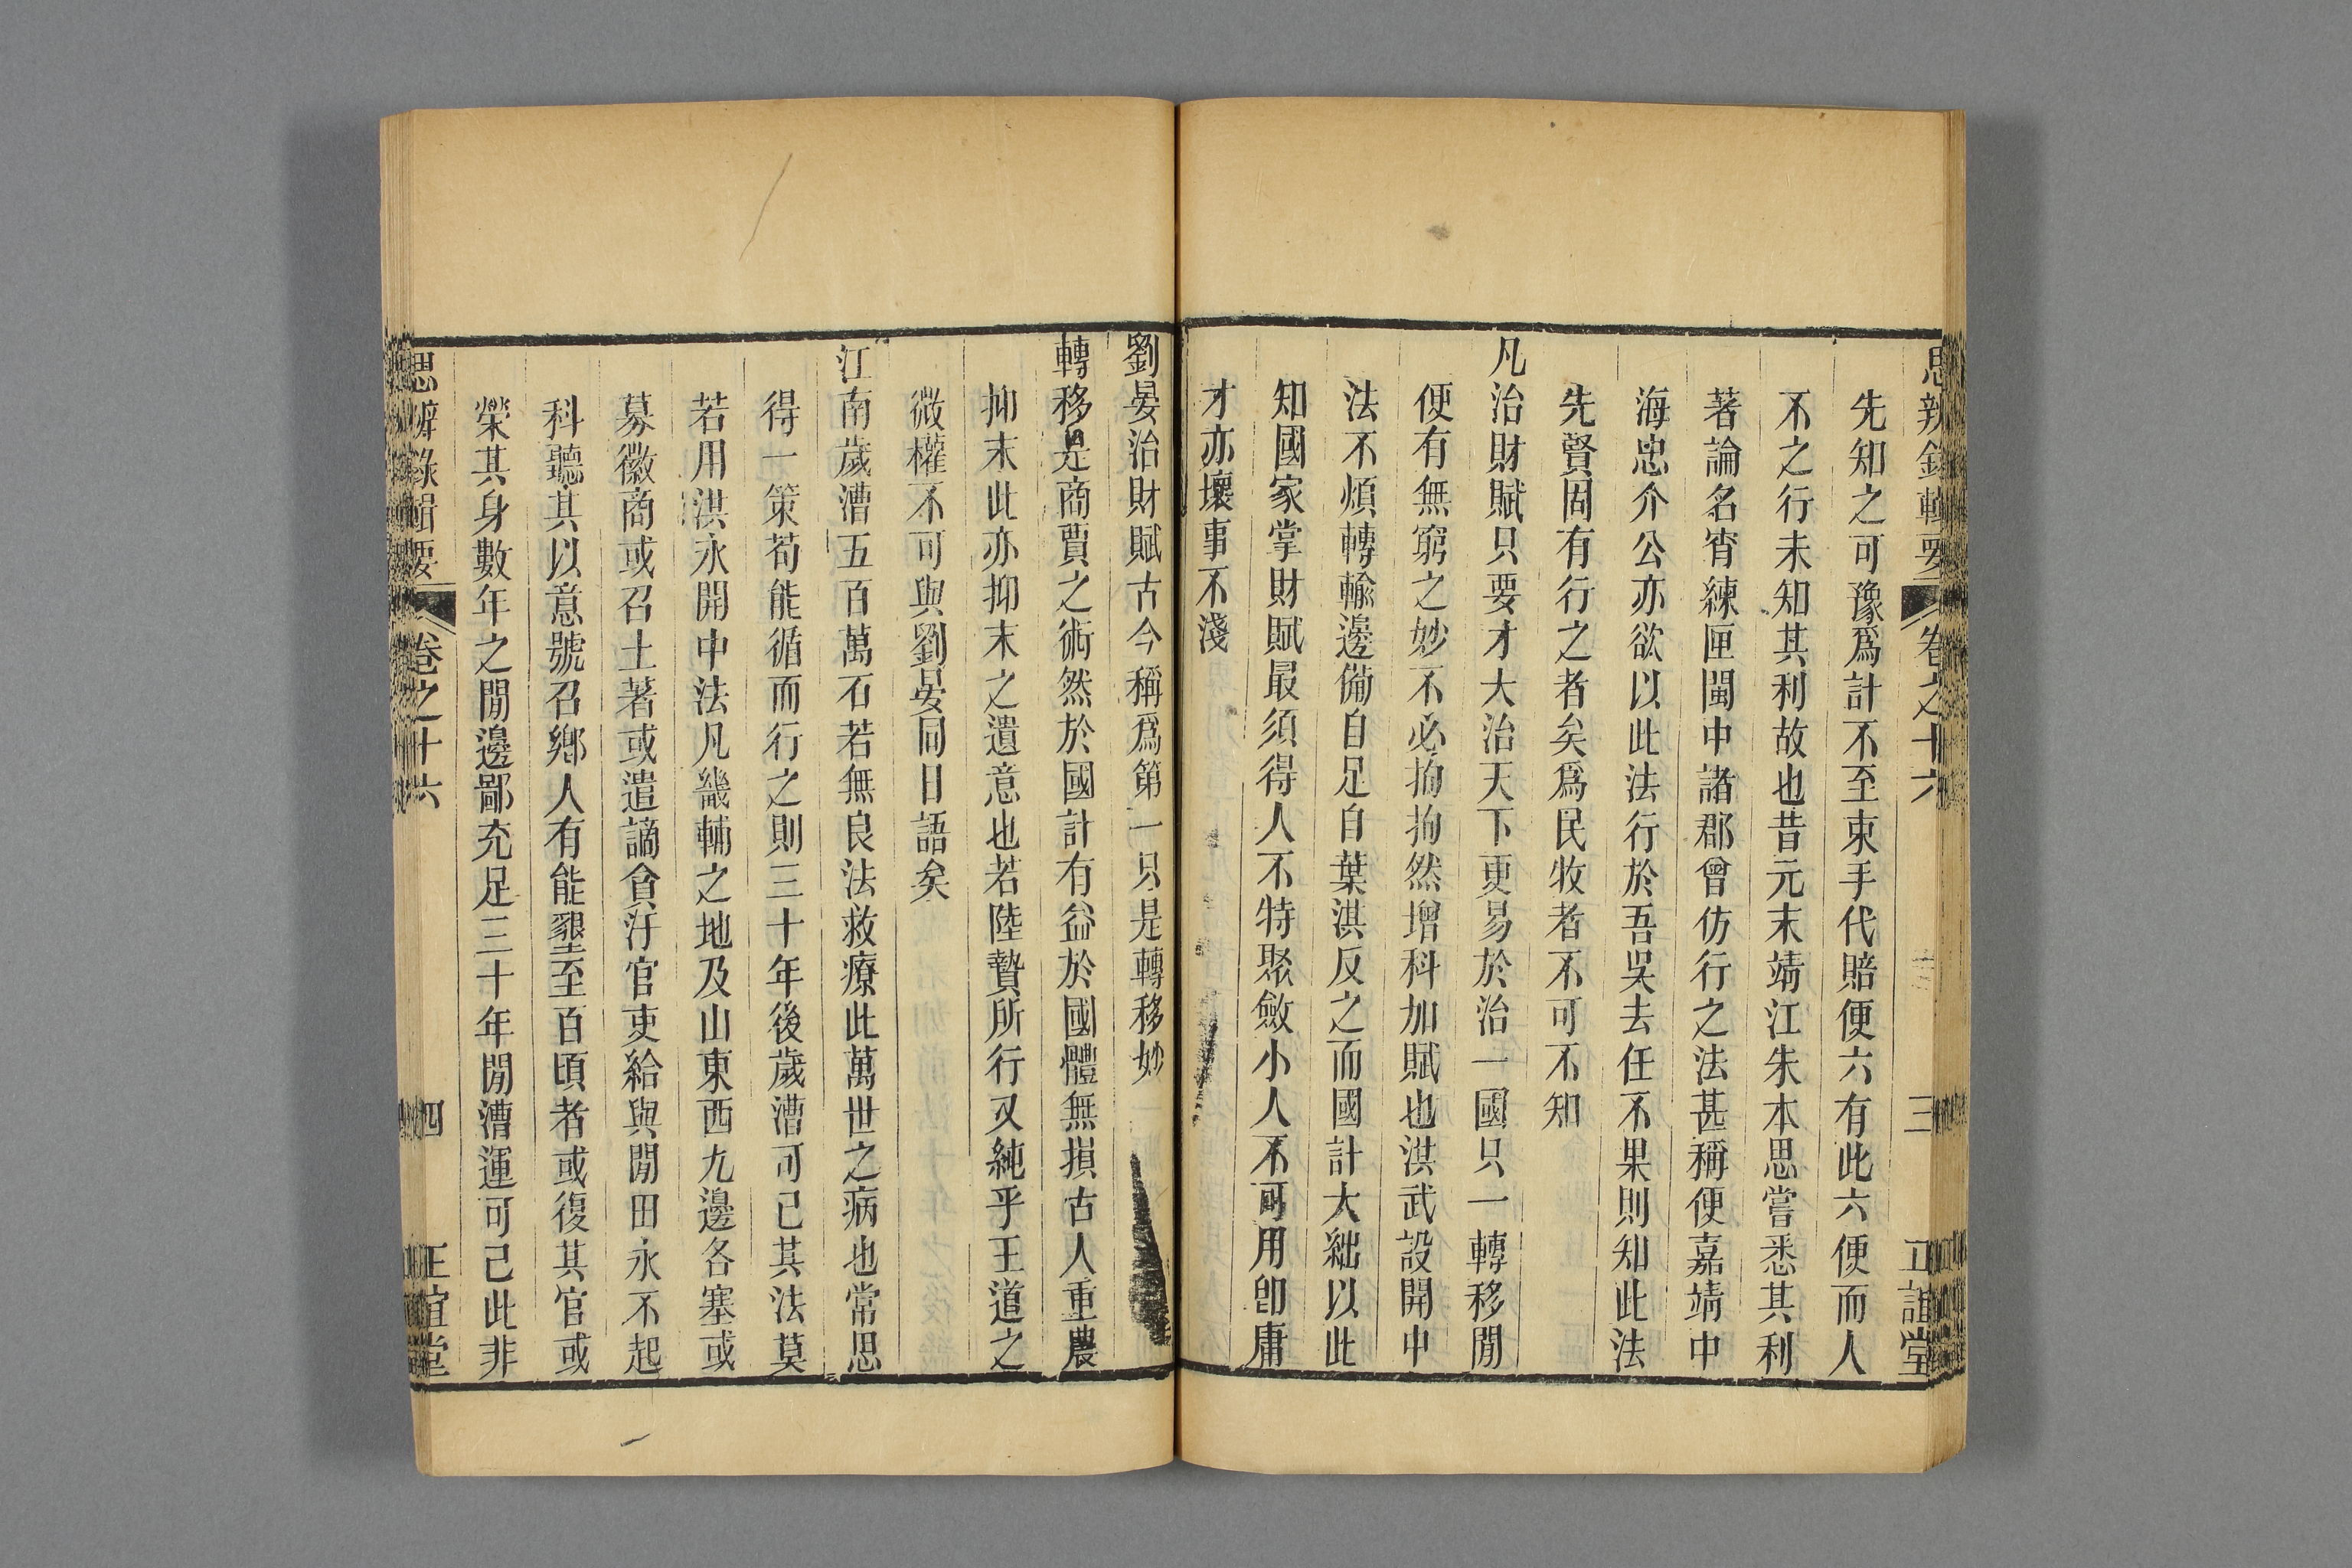 思辨錄輯要 卷之十六 三 正誼堂
先知之可豫爲計不至束手代賠便六有此六便而人
不之行未知其利故也昔元末靖江朱本思嘗悉其利
著論名宵練匣閩中諸郡曾仿行之法甚稱便嘉靖中
海忠介公亦欲以此法行於吾吳去任不果則知此法
先賢固有行之者矣爲民牧者不可不知
凡治財賦只要才大治天下更易於治一國只一轉移閒
便有無窮之妙不必拘拘然增科加賦也洪武設開中
法不煩轉輸邊備自足自葉淇反之而國計大絀以此
知國家掌財賦最須得人不特聚斂小人不可用卽庸
才亦壞事不淺
劉晏治財賦古今稱爲第一只是轉移妙
轉移是商賈之術然於國計有益於國體無損古人重農
抑末此亦抑末之遺意也若陸贄所行又純乎王道之
微權不可與劉晏同日語矣
江南歲漕五百萬石若無良法救療此萬世之病也常思
得一策苟能循而行之則三十年後歲漕可已其法莫
若用洪永開中法凡畿輔之地及山東西九邊各塞或
募徽商或召土著或遣謫貪汙官吏給與閒田永不起
科聽其以意號召鄉人有能墾至百頃者或復其官或
榮其身數年之閒邊鄙充足三十年閒漕運可已此非
思辨錄輯要 卷之十六 四 正誼堂